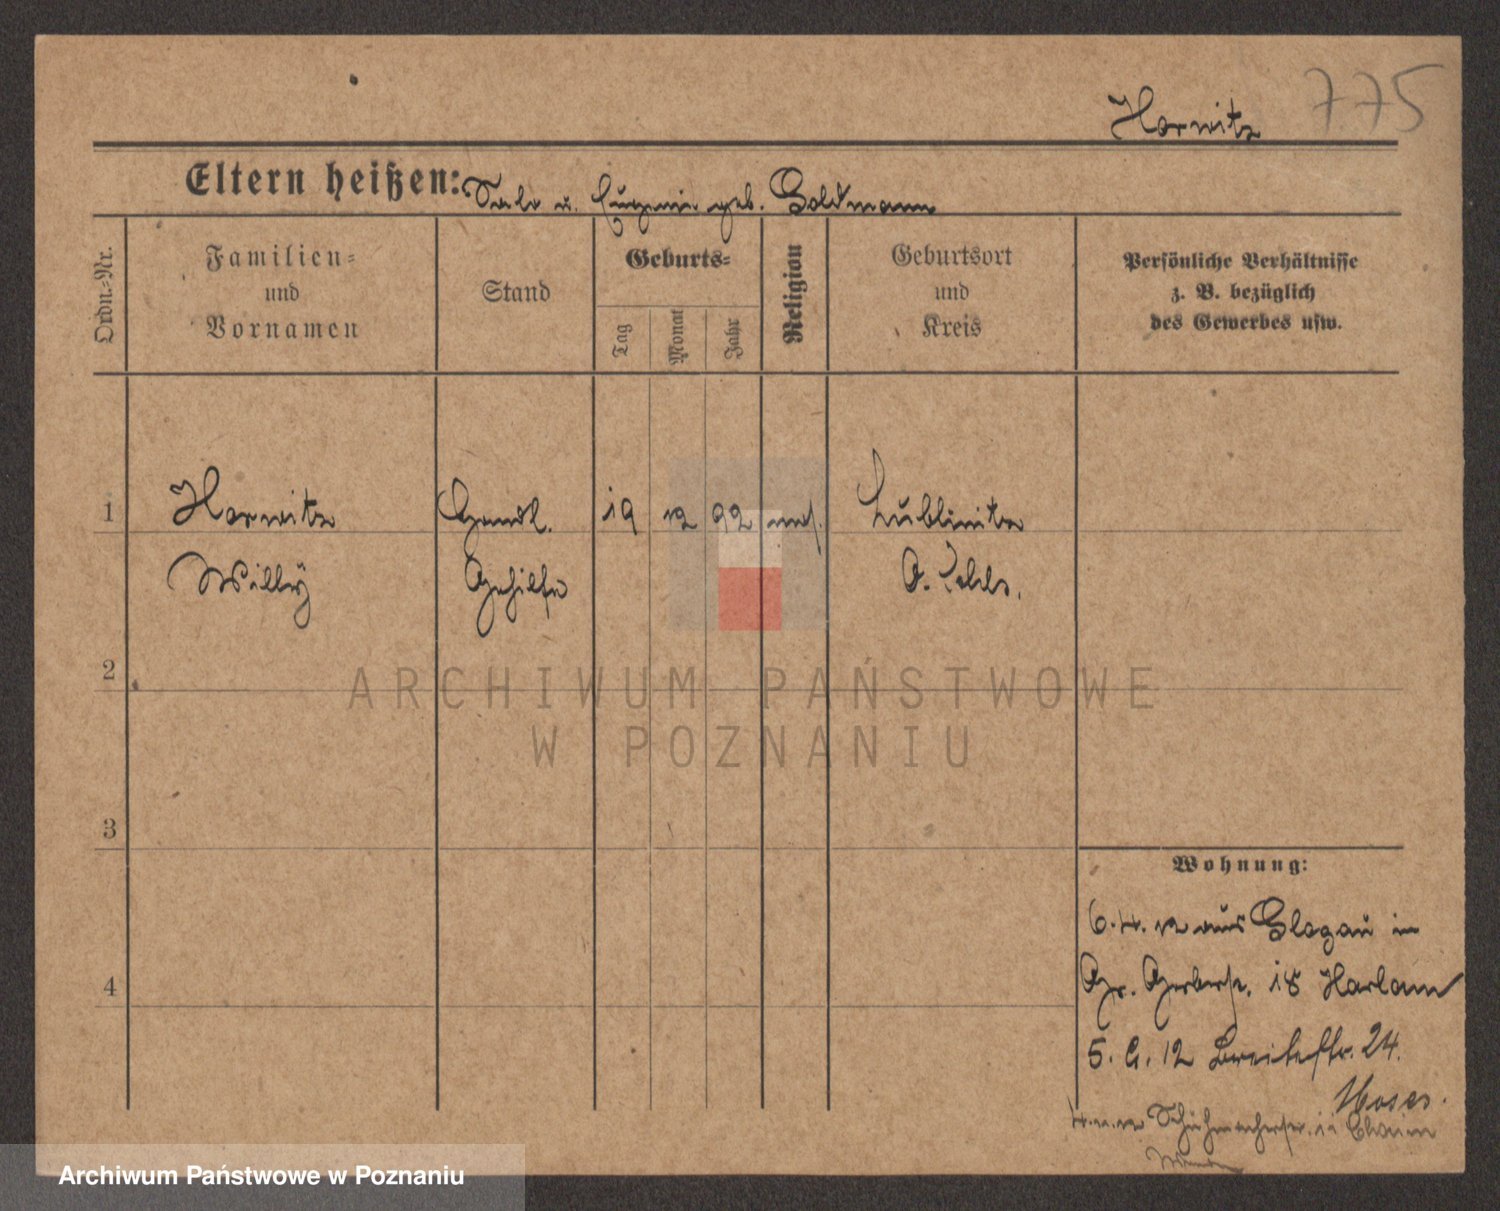 Horwitz 775
Eltern heißen: Salo u. Eugenie geb. Goldmann
Ordn.-Nr.
Familien-
und
Vornamen
Stand
Geburts-
Tag
Monat
Jahr
Religion
Geburtsort
und
Kreis
Persönliche Verhältnisse
z. B. bezüglich
des Gewerbes usw.
1 Horwitz Handl. 19 12 92 mos. Lublinitz
Willy Gehilfe O. Schls.
2
3
4
Wohnung:
6.4.12 aus Glogau in
Gr. Gerberstr. 18 Harlam
5. 6. 12 Breitestr. 24.
Moses.
Schuhmacherstr. 11 Chaim
ARCHIWUM PAŃSTWOWE
W POZNANIU
Archiwum Państwowe w Poznaniu